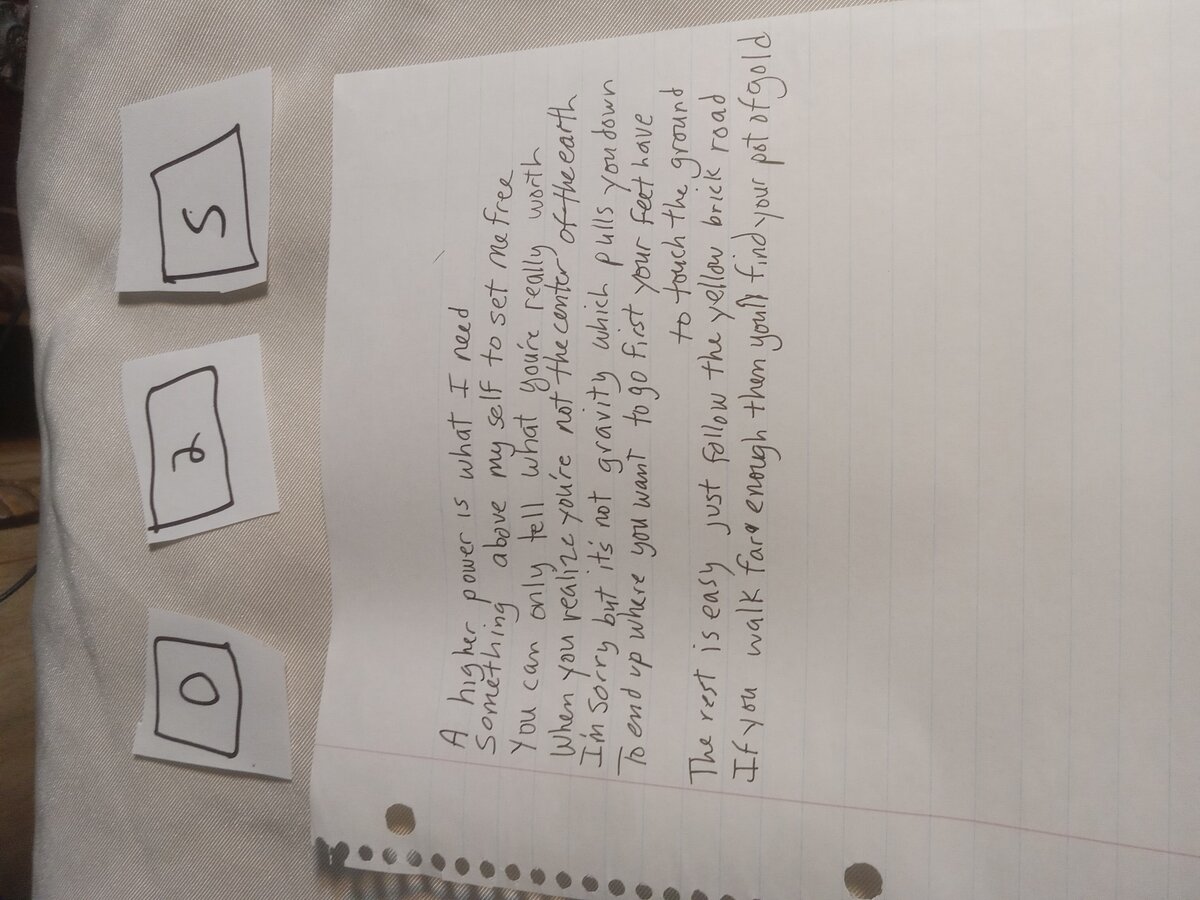 0 2 5
A higher power is what I need
Something above my self to set me free
You can only tell what you're really worth
When you realize you're not the center of the earth
I'm sorry but it's not gravity which pulls you down
To end up where you want to go first your feet have
to touch the ground
The rest is easy just follow the yellow brick road
If you walk far enough them you'll find your pot of gold